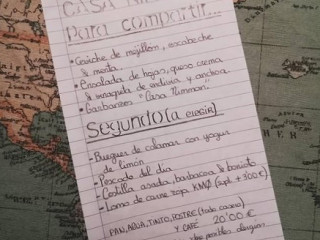 CASA
Para compartir...
• Ceviche de mejillón, escabeche
& menta.
• Ensalada de hojas, queso crema
& vinagreta de endivia y anchoa.
• Garbanzos "Casa
Segundo (a elegir)
- Burguer de calamar con yogur
de limón
- Pescado del día
- Costilla asada, barbacoa & boniato
- Lomo de carne roja KM0 (supl + 3'00€)
PAN, AGUA, TINTO, POSTRE (todo casero)
Y CAFÉ 20'00€
posibles alergias